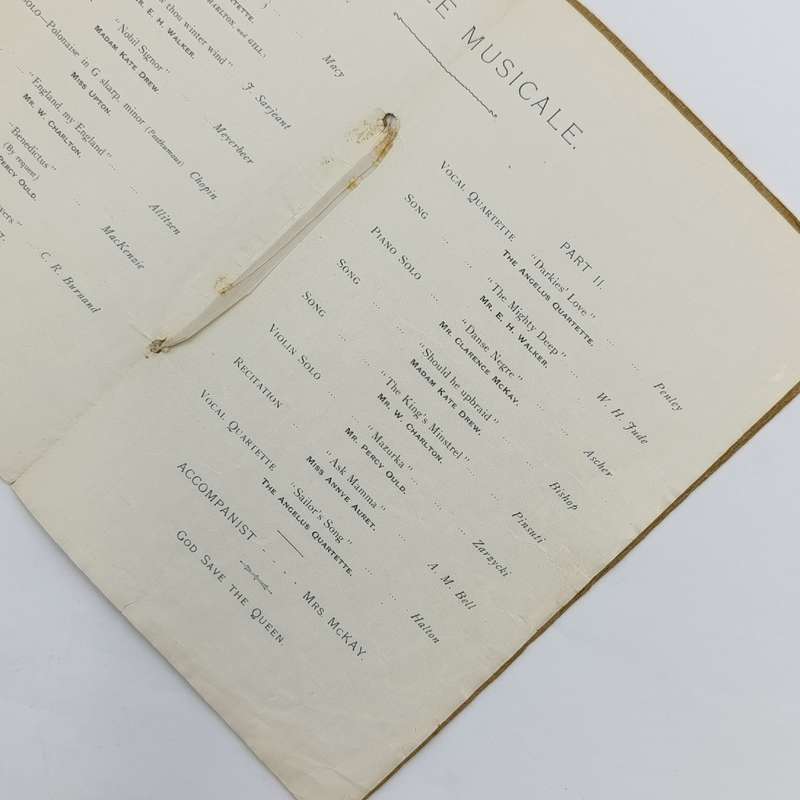 QUARTETTE.
CHARLTON and GILL.)
Macy
thou winter wind"
E. H. WALKER.
F. Sarjeant
"Nobil Signor"
MADAM KATE DREW.
Meyerbeer
SOLO—Polonaise in G sharp, minor (Posthumous)
MISS UPTON.
Chopin
"England, my England" ...
MR. W. CHARLTON.
Allitsen
"Benedictus" ...
(By request)
PERCY OULD.
MacKenzie
C. R. Burnand
EE MUSICALE.
PART II.
VOCAL QUARTETTE "Darkies' Love" ... ... Penley
THE ANGELUS QUARTETTE.
SONG ... ... "The Mighty Deep" ... ... W. H. Jude
MR. E. H. WALKER.
PIANO SOLO ... "Danse Negre" ... ... Ascher
MR. CLARENCE McKAY.
SONG ... ... "Should he upbraid" ... ... Bishop
MADAM KATE DREW.
SONG ... ... "The King's Minstrel" ... ... Pinsuti
MR. W. CHARLTON.
VIOLIN SOLO ... "Mazurka" ... ... Zarzycki
MR. PERCY OULD.
RECITATION ... "Ask Mamma" ... ... A. M. Bell
MISS ANNYE AURET.
VOCAL QUARTETTE "Sailor's Song" ... ... Halton
THE ANGELUS QUARTETTE.
ACCOMPANIST - - - - MRS. McKAY.
GOD SAVE THE QUEEN.